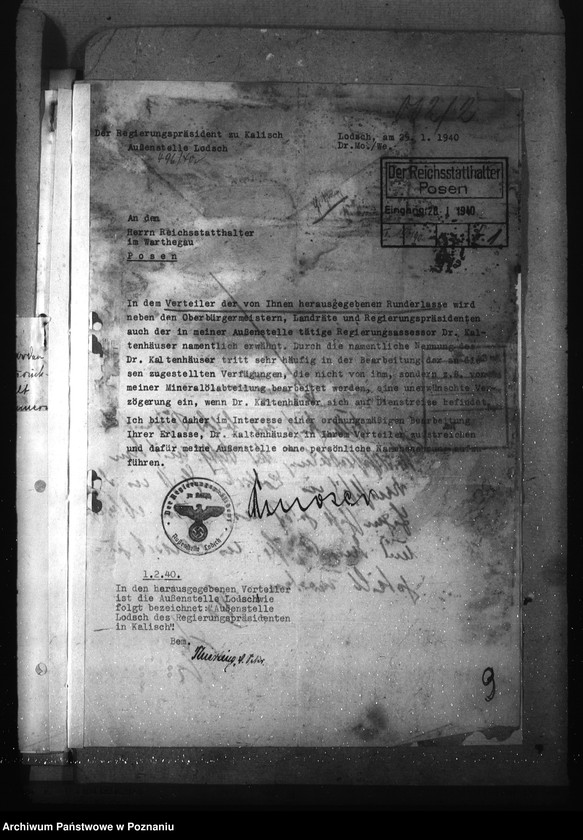 Der Regierungspräsident zu Kalisch
Außenstelle Lodsch
496/40.
Lodsch, am 25. 1. 1940
Dr.Mo./We.
Der Reichsstatthalter
Posen
Eingang: 28. I. 1940
An den
Herrn Reichsstatthalter
im Warthegau
Posen
In dem Verteiler der von Ihnen herausgegebenen Runderlasse wird
neben den Oberbürgermeistern, Landräte und Regierungspräsidenten
auch der in meiner Außenstelle tätige Regierungsassessor Dr. Kal-
tenhäuser namentlich erwähnt. Durch die namentliche Nennung des
Dr. Kaltenhäuser tritt sehr häufig in der Bearbeitung der an die-
sen zugestellten Verfügungen, die nicht von ihm, sondern z.B. von
meiner Mineralölabteilung bearbeitet werden, eine unerwünschte Ver-
zögerung ein, wenn Dr. Kaltenhäuser sich auf Dienstreise befindet.
Ich bitte daher im Interesse einer ordnungsmäßigen Bearbeitung
Ihrer Erlasse, Dr. Kaltenhäuser in Ihrem Verteiler zu streichen
und dafür meine Außenstelle ohne persönliche Namensnennung
führen.
Der Regierungspräsident
zu Kalisch
Außenstelle Lodsch
1.2.40.
In den herausgegebenen Verteiler
ist die Außenstelle Lodsch wie
folgt bezeichnet: "Außenstelle
Lodsch des Regierungspräsidenten
in Kalisch".
Bem.
9
Archiwum Państwowe w Poznaniu